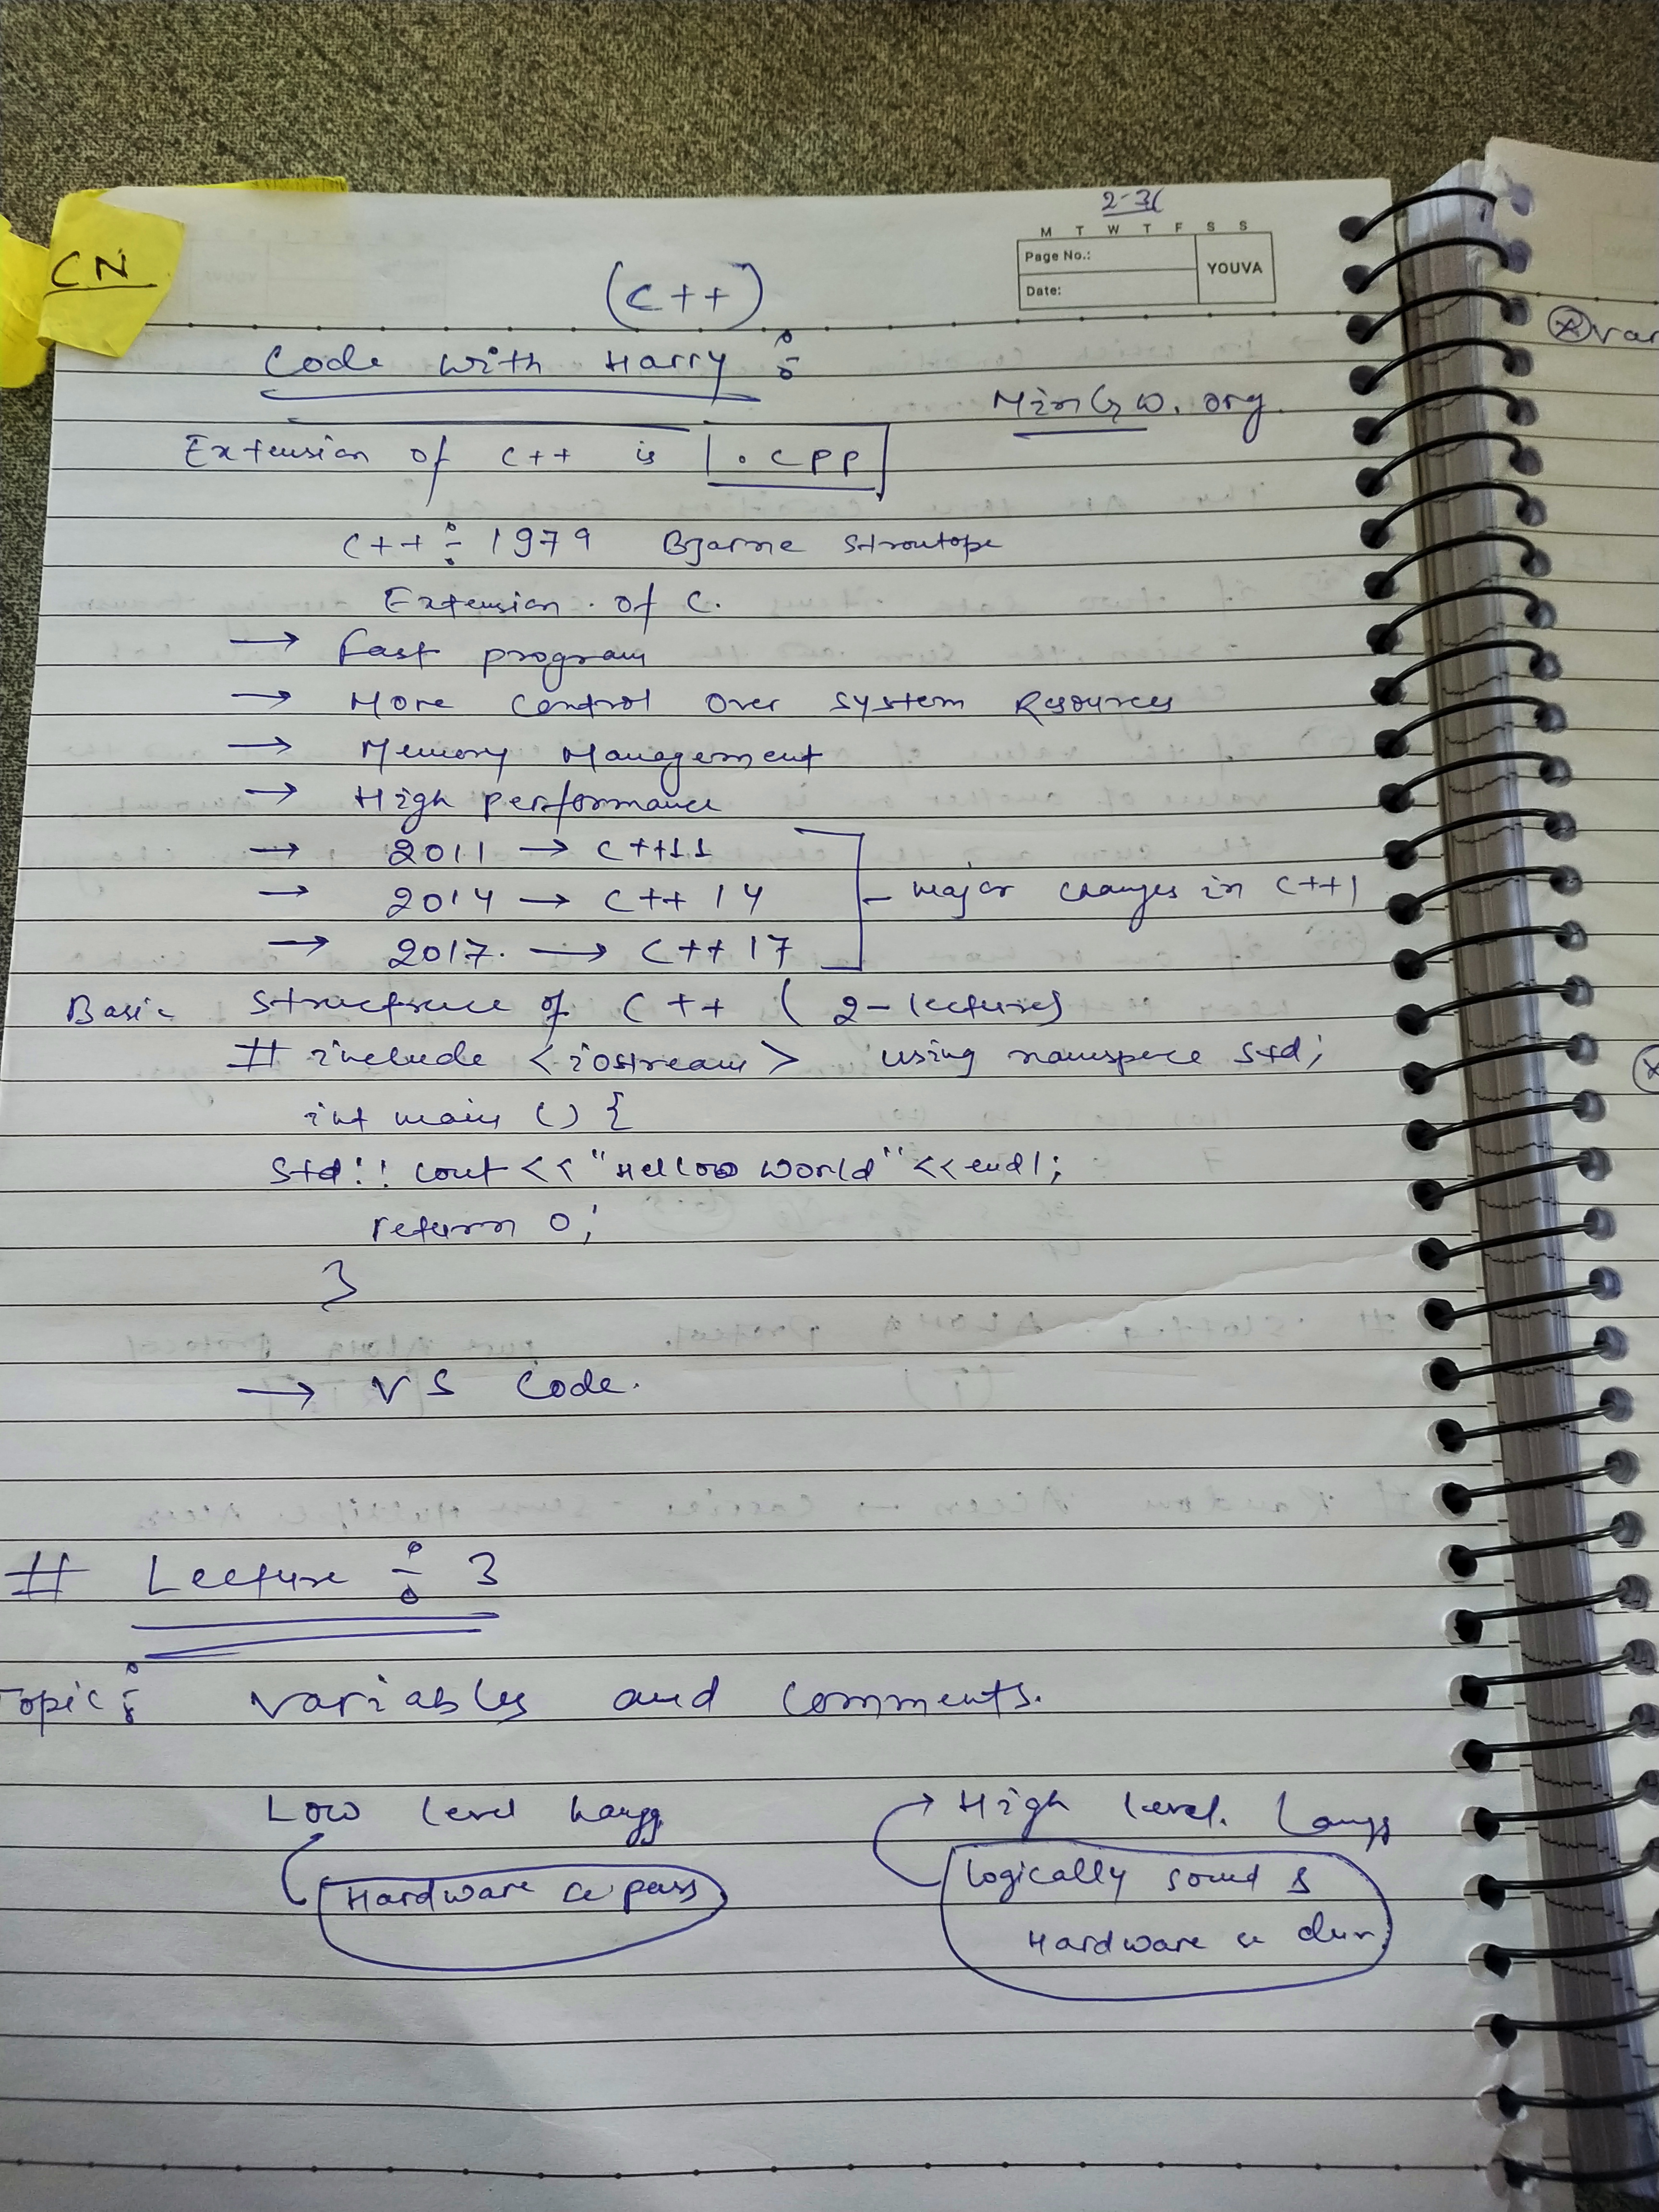 2-3(
M T W T F S S
Page No.:
YOUVA
Date:
CN
(C++)
Code With Harry :
MinGW.org.
Extension of C++ is .cpp
C++ : 1979 Bjarne Stroutope
Extension of C.
→ Fast program
→ More Control Over System Resources
→ Memory Management
→ High performance
→ 2011 → C++11
→ 2014 → C++ 14 - major changes in C++
→ 2017. → C++ 17
Basic Structrure of C++ ( 2-lectures)
# include <iostream> using namespace std;
int main () {
std:: cout << "Helloo World" << endl;
return 0;
}
→ VS Code.
# Lecture : 3
Topic : Variables and Comments.
Low level Langg → High level. Langg
Hardware ke pass
Logically sound &
Hardware se dur
var